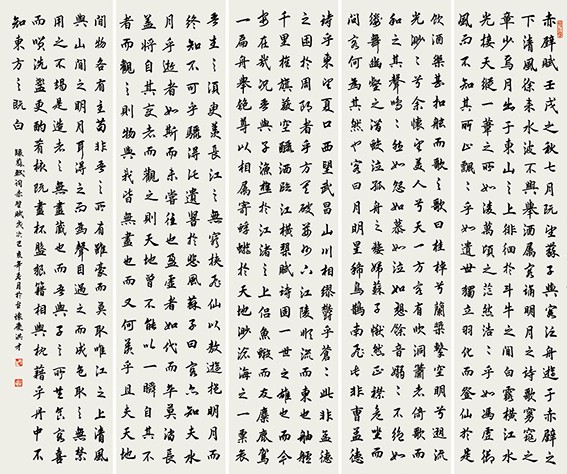 赤壁賦壬戌之秋七月既望蘇子與客泛舟遊于赤壁之
下清風徐來水波不興舉酒屬客誦明月之詩歌窈窕之
章少焉月出于東山之上徘徊於斗牛之間白露橫江水
光接天縱一葦之所如凌萬頃之茫然浩浩乎如馮虛御
風而不知其所止飄飄乎如遺世獨立羽化而登仙於是
飲酒樂甚扣舷而歌之歌曰桂棹兮蘭槳擊空明兮泝流
光渺渺兮余懷望美人兮天一方客有吹洞簫者倚歌而
和之其聲嗚嗚然如怨如慕如泣如訴餘音嫋嫋不絕如
縷舞幽壑之潛蛟泣孤舟之嫠婦蘇子愀然正襟危坐而
問客何為其然也客曰月明星稀烏鵲南飛此非曹孟德之
詩乎東望夏口西望武昌山川相繆鬱乎蒼蒼此非孟德
之困於周郎者乎方其破荊州下江陵順流而東也舳艫
千里旌旗蔽空釃酒臨江橫槊賦詩固一世之雄也而今
安在哉況吾與子漁樵於江渚之上侶魚蝦而友麋鹿駕
一扁舟舉匏尊以相屬寄蜉蝣於天地渺滄海之一粟哀
吾生之須臾羨長江之無窮挾飛仙以遨遊抱明月而
終知不可乎驟得託遺響於悲風蘇子曰客亦知夫水
月乎逝者如斯而未嘗往也盈虛者如代而卒莫消長
蓋將自其變者而觀之則天地曾不能以一瞬自其不
者而觀之則物與我皆無盡也而又何羨乎且夫天地
間物各有主苟非吾之所有雖毫而莫取唯江之上清風
與山間之明月耳得之而為聲目遇之而成色取之無禁
用之不竭是造者之無盡藏也而吾與子之所共食客喜
而笑洗盞更酌肴核既盡杯盤狼籍相與枕藉乎舟中不
知東方之既白
蘇軾詞赤壁賦歲次己亥年月於古懷慶洪才